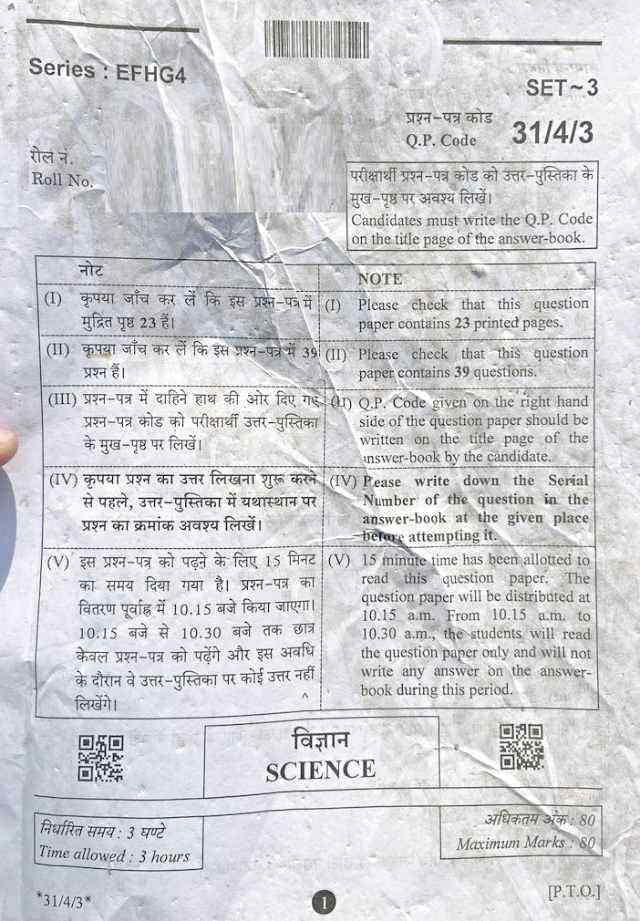 Series : EFHG4
SET~3
प्रश्न-पत्र कोड
Q.P. Code
31/4/3
रोल नं.
Roll No.
परीक्षार्थी प्रश्न-पत्र कोड को उत्तर-पुस्तिका के
मुख-पृष्ठ पर अवश्य लिखें।
Candidates must write the Q.P. Code
on the title page of the answer-book.
नोट
(I) कृपया जाँच कर लें कि इस प्रश्न-पत्र में
मुद्रित पृष्ठ 23 हैं।
(II) कृपया जाँच कर लें कि इस प्रश्न-पत्र में 39
प्रश्न हैं।
(III) प्रश्न-पत्र में दाहिने हाथ की ओर दिए गए
प्रश्न-पत्र कोड को परीक्षार्थी उत्तर-पुस्तिका
के मुख-पृष्ठ पर लिखें।
(IV) कृपया प्रश्न का उत्तर लिखना शुरू करने
से पहले, उत्तर-पुस्तिका में यथास्थान पर
प्रश्न का क्रमांक अवश्य लिखें।
(V) इस प्रश्न-पत्र को पढ़ने के लिए 15 मिनट
का समय दिया गया है। प्रश्न-पत्र का
वितरण पूर्वाह्न में 10.15 बजे किया जाएगा।
10.15 बजे से 10.30 बजे तक छात्र
केवल प्रश्न-पत्र को पढ़ेंगे और इस अवधि
के दौरान वे उत्तर-पुस्तिका पर कोई उत्तर नहीं
लिखेंगे।
NOTE
(I) Please check that this question
paper contains 23 printed pages.
(II) Please check that this question
paper contains 39 questions.
Q.P. Code given on the right hand
side of the question paper should be
written on the title page of the
answer-book by the candidate.
(IV) Please write down the Serial
Number of the question in the
answer-book at the given place
before attempting it.
(V) 15 minute time has been allotted to
read this question paper. The
question paper will be distributed at
10.15 a.m. From 10.15 a.m. to
10.30 a.m., the students will read
the question paper only and will not
write any answer on the answer-
book during this period.
विज्ञान
SCIENCE
निर्धारित समय : 3 घण्टे
Time allowed : 3 hours
अधिकतम अंक : 80
Maximum Marks : 80
*31/4/3*
1
[P.T.O.]